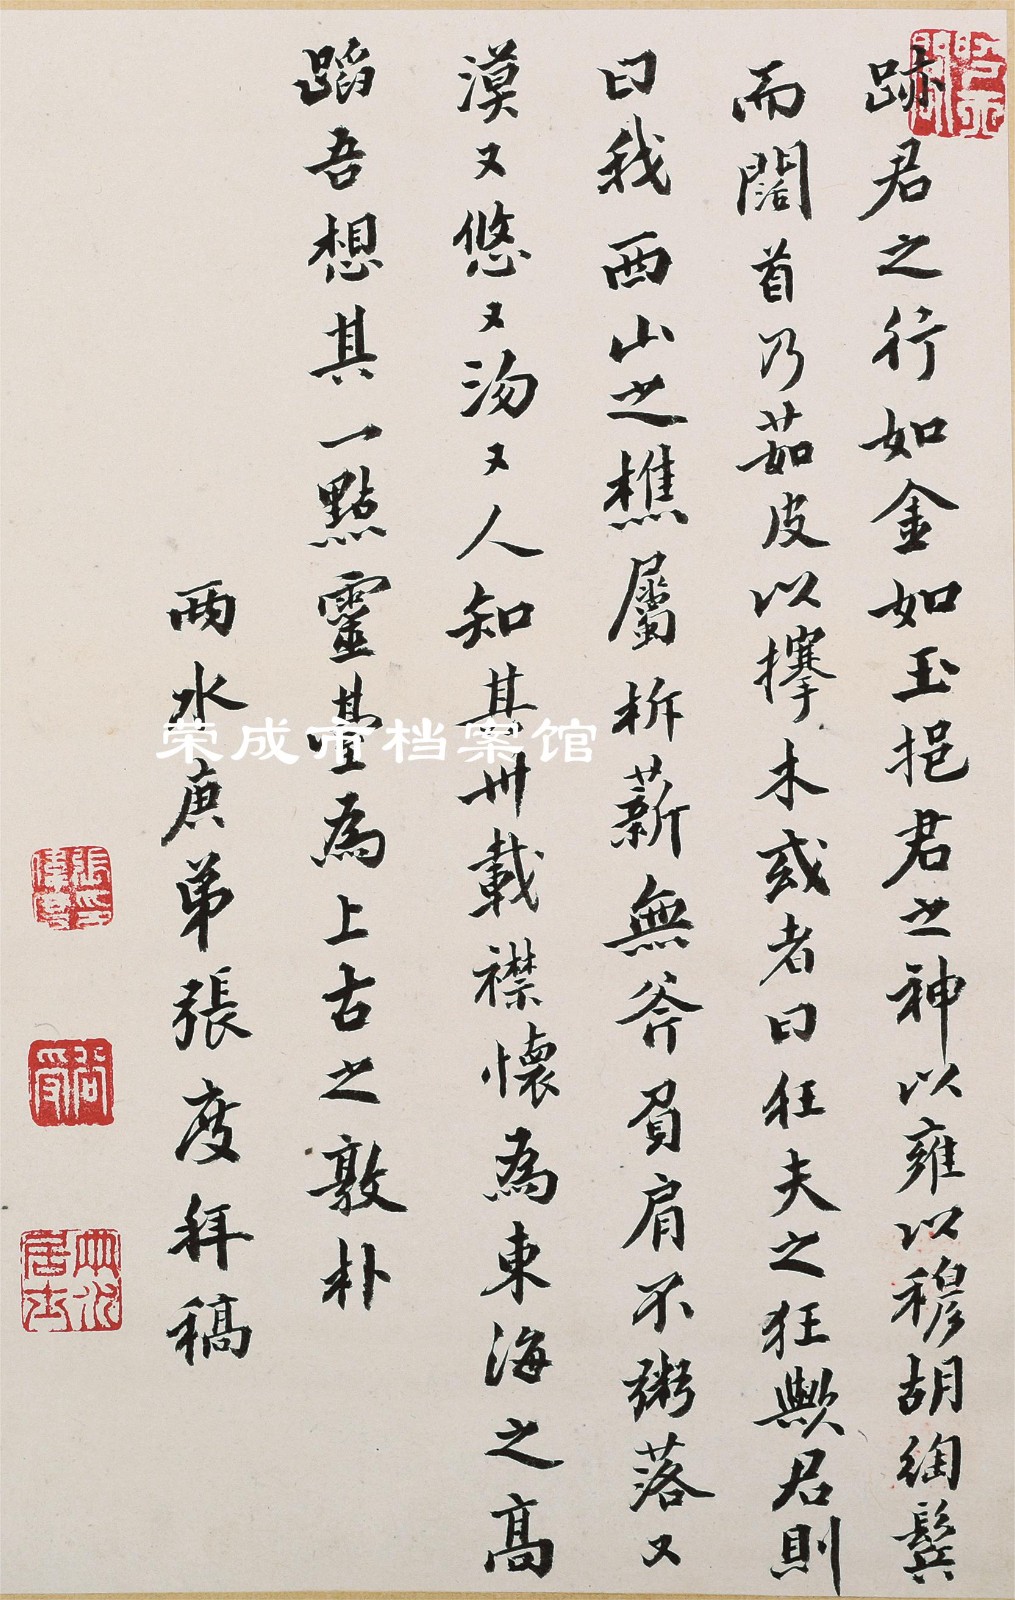 跡君之行如金如玉挹君之神以雍以穆胡綯鬓
而闊首乃茹皮以擰木或者曰狂夫之狂歟君則
曰我西山之樵屬析薪無斧負肩不粥落又
漠又悠又沕又人知其卅載襟懷為東海之高
蹈吾想其一點靈臺為上古之敦朴
兩水庚弟張度拜稿
荣成市档案馆